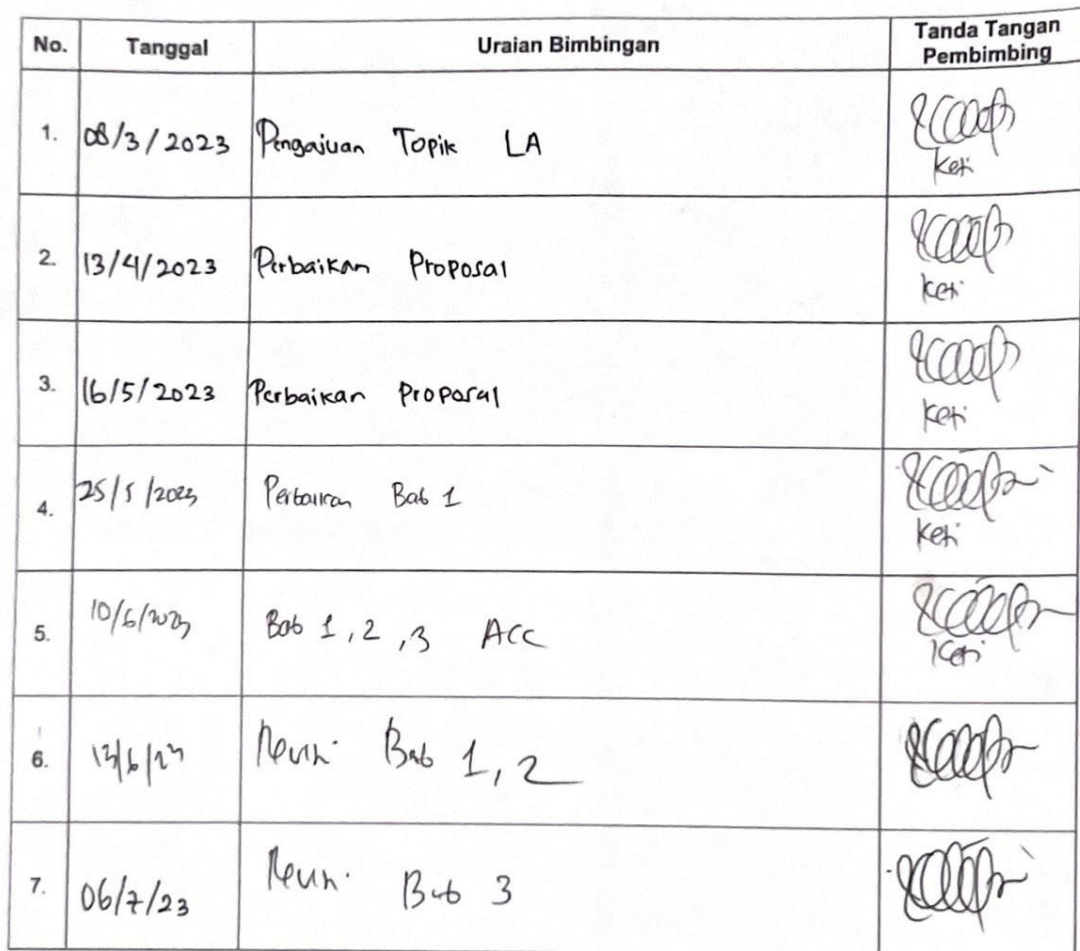 No. Tanggal Uraian Bimbingan Tanda Tangan Pembimbing
1. 08/3/2023 Pengajuan Topik LA Keti
2. 13/4/2023 Perbaikan Proposal Keti
3. 16/5/2023 Perbaikan Proposal Keti
4. 25/5/2023 Perbaikan Bab 1 Keti
5. 10/6/2023 Bab 1, 2, 3 ACC Keti
6. Revisi Bab 1, 2
7. 06/7/23 Revisi Bab 3